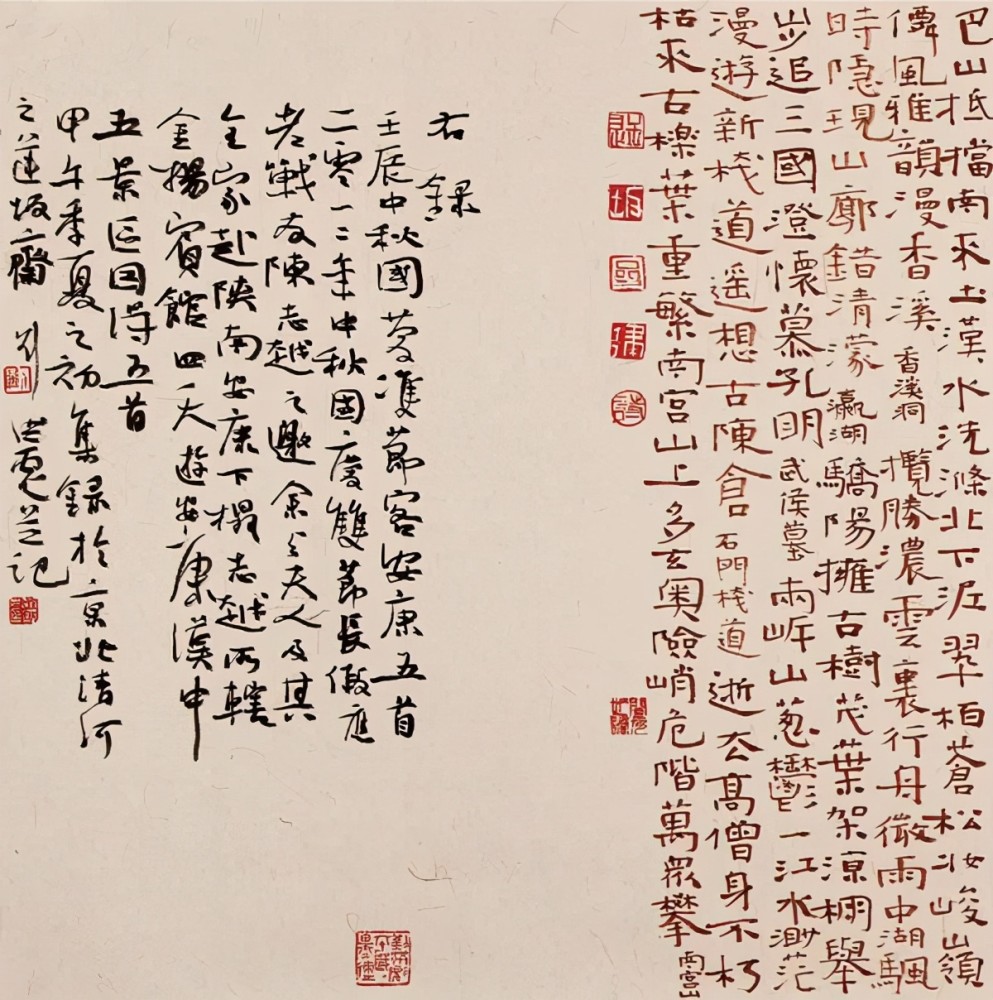 巴山抵擋南來土漢水洗滌北下泥翠柏蒼松妝峻嶺
僻風雅韻漫香溪 香溪洞 攬勝濃雲裏行舟微雨中湖颿
時隱現山廓錯清濛 瀛湖 驕陽擁古樹茂葉架涼棚舉
步追三國澄懷慕孔明 武侯墓 兩岸山蔥鬱一江水渺茫
漫遊新棧道遥想古陳倉 石門棧道 逝玄高僧身不朽
枯來古樸葉重繁南宮山上多玄奧險峭危階萬眾攀 南宮山
右錄
壬辰中秋國慶雙節客安康五首
二零一二年中秋國慶雙節長假應
老戰友陳志越之邀余與夫人及其
全家赴陝南安康下榻志越所轄
金揚賓館四天遊安康漢中
五景区因得五首
甲午季夏之初集錄於京北清河
之蓮坂齋 劉 洪寬芝記